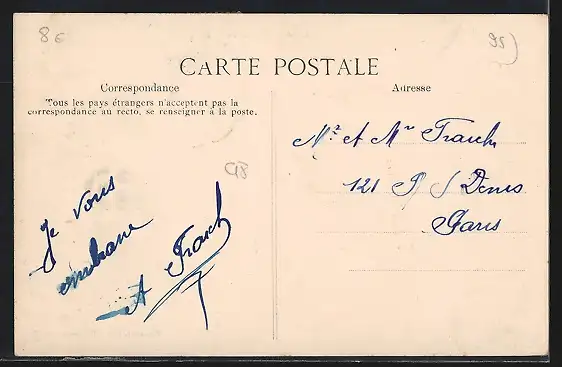 8€
95)
CARTE POSTALE
Correspondance
Tous les pays étrangers n'acceptent pas la
correspondance au recto, se renseigner à la poste.
Adresse
Mr et Mme
121 Denis
Paris
Je vous
embrasse